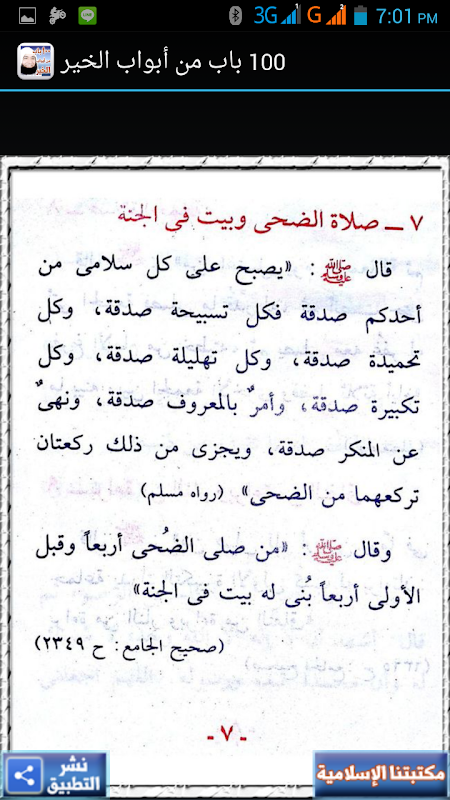 3G G 7:01 PM
100 باب من أبواب الخير
٧ ــ صلاة الضحى وبيت فى الجنة
قال ﷺ : «يصبح على كل سلامى من
أحدكم صدقة فكل تسبيحة صدقة، وكل
تحميدة صدقة، وكل تهليلة صدقة، وكل
تكبيرة صدقة، وأمرٌ بالمعروف صدقة، ونهىٌ
عن المنكر صدقة، ويجزى من ذلك ركعتان
تركعهما من الضحى» (رواه مسلم)
وقال ﷺ : «من صلى الضُحى أربعاً وقبل
الأولى أربعاً بُنى له بيت فى الجنة»
(صحيح الجامع : ح ٢٣٤٩)
- ٧ -
مكتبتنا الإسلامية
نشر
التطبيق